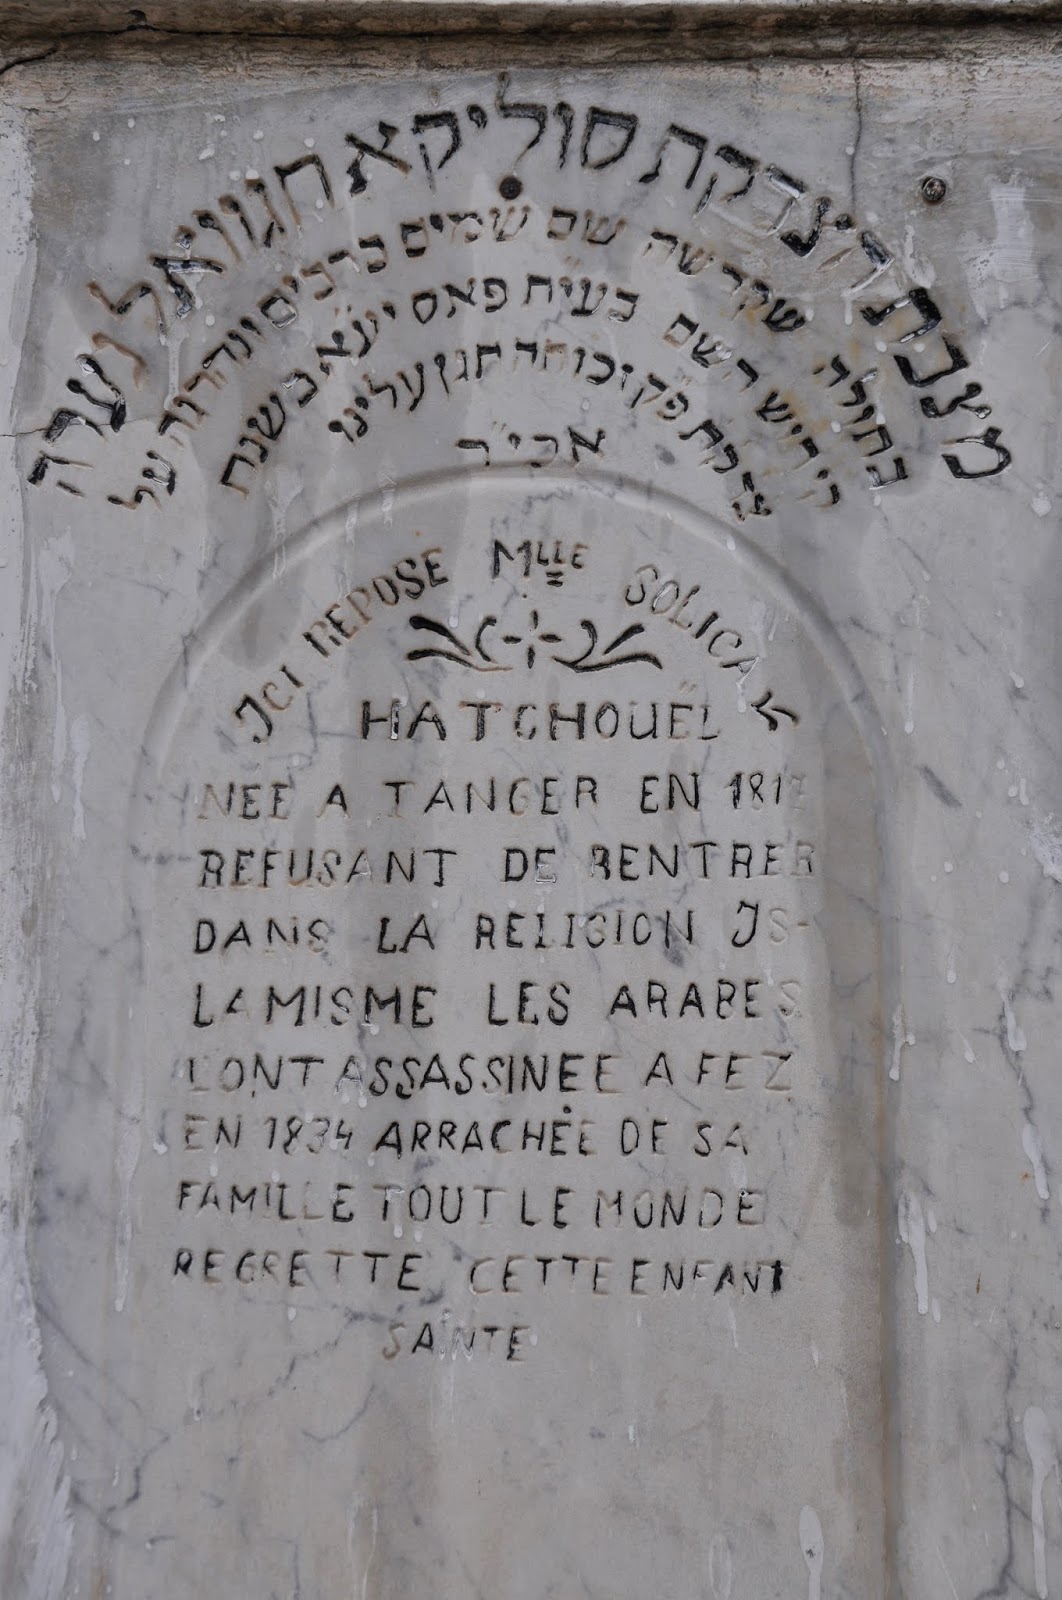 מצבת הצדקת סוליקא חגוויאל נערה
בתולה שקדשה שם שמים ברבים ונהרגה על
קדוש השם בעי״ת פאס יע״א בשנת
תקצ״ד ונקברה פה זכותה תגן עלינו
אכי״ר
ICI REPOSE MLLE SOLICA
HATCHOUËL
NEE A TANGER EN 1817
REFUSANT DE RENTRER
DANS LA RELIGION IS-
LAMISME LES ARABES
L'ONT ASSASSINEE A FEZ
EN 1834 ARRACHÉE DE SA
FAMILLE TOUT LE MONDE
REGRETTE CETTE ENFANT
SAINTE